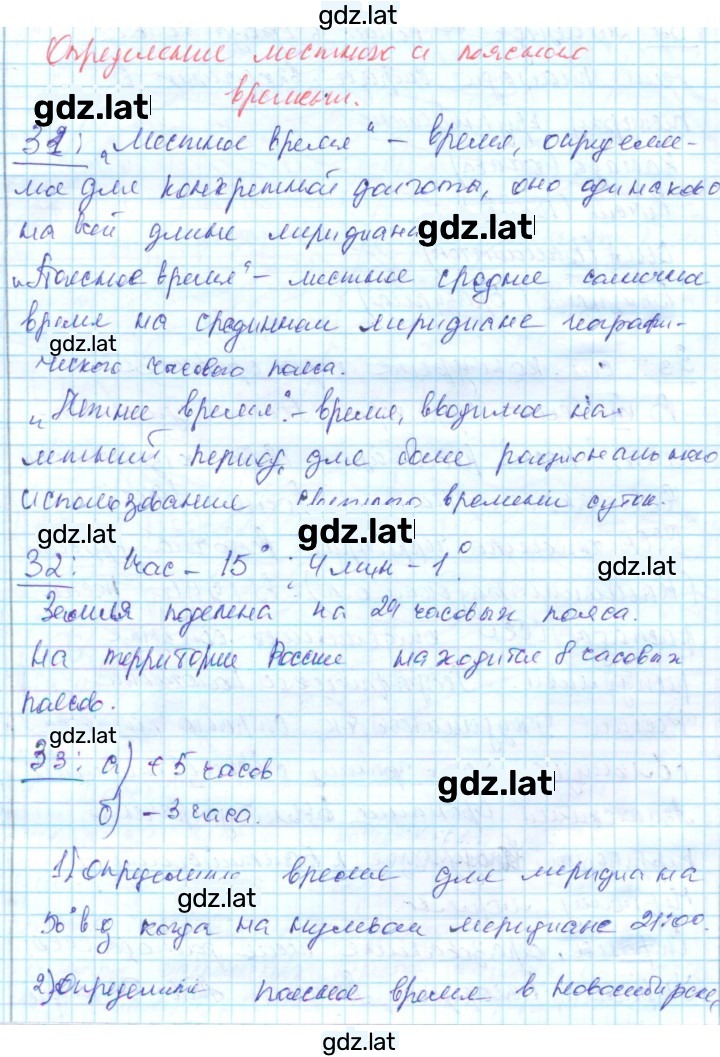 gdz.lat
Определение местного и поясного
времени.
gdz.lat
31: „Местное время“ – время, определяе-
мое для конкретной долготы, оно одинаково
на всей длине меридиана
gdz.lat
„Поясное время“ – местное среднее солнечное
время на срединном меридиане географи-
gdz.lat
ческого часового пояса.
„Летнее время“ – время, вводимое на
летний период, для более рационального
использования светлого времени суток.
gdz.lat
gdz.lat
gdz.lat
32: 1 час – 15°; 4 мин – 1°
Земля поделена на 24 часовых пояса.
На территории России находится 8 часовых
поясов.
gdz.lat
33: а) +5 часов
gdz.lat
б) – 3 часа.
1) Определите время для меридиана
gdz.lat
50° в д когда на нулевом меридиане 21:00.
2) Определите поясное время в Новосибирске,
gdz.lat